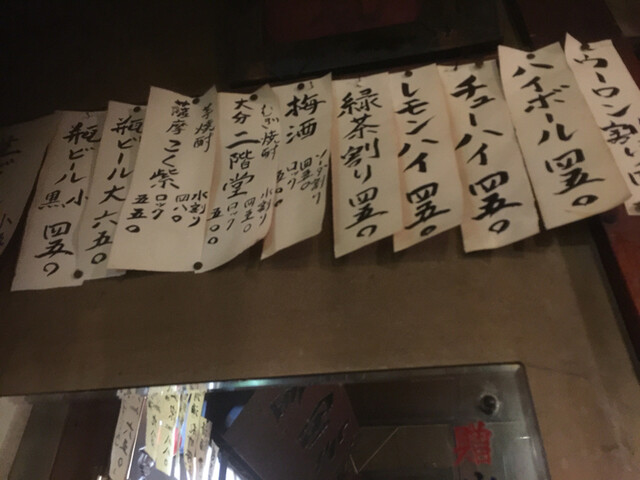 ウーロン割り
ハイボール 四五〇
チューハイ 四五〇
レモンハイ 四五〇
緑茶割り 四五〇
梅酒
ソーダ割り
四五〇
ロック
五〇〇
むぎ焼酎
大分 二階堂
水割り
四五〇
ロック
五〇〇
芋焼酎
薩摩 こく紫
水割り
四八〇
ロック
五五〇
瓶ビール大 六五〇
瓶ビール小 黒 四五〇